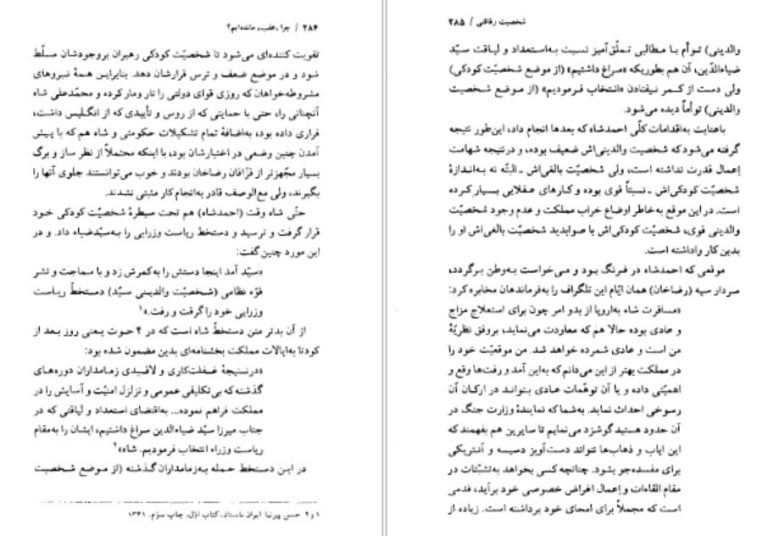 ۲۸۴ / چرا «عقب» مانده‌ایم؟
تقویت کننده‌ای می‌شود تا شخصیّت کودکی رهبران بروجودشان مسلّط
شود و در موضع ضعف و ترس قرارشان دهد. بنابراین همهٔ نیروهای
مشروطه‌خواهان که روزی قوای دولتی را تار ومار کرده و محمّدعلی شاه
آنچنانی را، حتی با حمایتی که از روس و تأییدی که از انگلیس داشت،
فراری داده بود، به‌اضافهٔ تمام تشکیلات حکومتی و شاه هم که با پیش
آمدن چنین وضعی در اختیارشان بود، با اینکه محتملاً از نظر ساز و برگ
بسیار مجهّزتر از قزّاقان رضاخان بودند و خوب می‌توانستند جلوی آنها را
بگیرند، ولی مع‌الوصف قادر به‌انجام کار مثبتی نشدند.
حتّی شاه وقت (احمدشاه) هم تحت سیطرهٔ شخصیّت کودکی خود
قرار گرفت و ترسید و دستخط ریاست وزرایی را به‌سیّدضیاء داد. و در
این مورد چنین گفت:
«سیّد آمد اینجا دستش را به‌کمرش زد و با سماجت و تشر
قزّه نظامی (شخصیّت والدینی سیّد) دستخطّ ریاست
وزرایی خود را گرفت و رفت.»۱
از آن بدتر متن دستخطّ شاه است که در ۴ حوت یعنی روز بعد از
کودتا به‌ایالات مملکت بخشنامه‌ای بدین مضمون شده بود:
«درنتیجهٔ غفلت‌کاری و لاقیدی زمامداران دوره‌های
گذشته که بی‌تکلیفی عمومی و تزلزل امنیّت و آسایش را در
مملکت فراهم نموده... به‌اقتضای استعداد و لیاقتی که در
جناب میرزا سیّد ضیاءالدین سراغ داشتیم، ایشان را به‌مقام
ریاست وزراء انتخاب فرمودیم. شاه»۲
در این دستخط حمله به‌زمامداران گذشته (از موضع شخصیت
۱ و۲ حسن پیرنیا ایران باستان، کتاب اوّل، چاپ سوّم، ۱۳۴۱
شخصیت رفاقتی / ۲۸۵
والدینی) توأم با مطالبی تملّق‌آمیز نسبت به‌استعداد و لیاقت سیّد
ضیاءالدّین، آن هم بطوریکه «سراغ داشتیم» (از موضع کودکی)
ولی دست از کمر نیفتادن «انتخاب فرمودیم» (از موضع شخصیت
والدینی) توأماً دیده می‌شود.
باعنایت به‌اقدامات کلّی احمدشاه که بعدها انجام داد، این‌طور نتیجه
گرفته می‌شود که شخصیت والدینی‌اش ضعیف بوده، و درنتیجه شهامت
إعمال قدرت نداشته است، ولی شخصیّت بالغی‌اش ـ البتّه نه به‌اندازهٔ
شخصیّت کودکی‌اش ـ نسبتاً قوی بوده و کارهای عقلایی بسیار کرده
است. در این موقع به‌خاطر اوضاع خراب مملکت و عدم وجود شخصیّت
والدینی قوی، شخصیّت کودکی‌اش با صوابدید شخصیّت بالغی‌اش او را
بدین کار واداشته است.
موقعی که احمدشاه در فرنگ بود و می‌خواست به‌وطن برگردد،
سردار سپه (رضاخان) همان ایّام این تلگراف را به‌فرماندهان مخابره کرد:
«مسافرت شاه به‌اروپا از بدو امر چون برای استعلاج مزاج
و عادی بوده حالا هم که معاودت می‌نماید، بروفق نظریّهٔ
من است و عادی شمرده خواهد شد. من موقعیّت خود را
در مملکت بهتر از این می‌دانم که به‌این آمد و رفت‌ها وقع و
اهمیّتی داده و یا آن توهّمات عادی بتواند در ارکان آن
رسوخی احداث نماید. به‌شما که نمایندهٔ وزارت جنگ در
آن حدود هستید گوشزد می‌نمایم تا سایرین هم بفهمند که
این ایاب و ذهاب‌ها نتواند دست‌آویز دسیسه و آنتریکی
برای مفسده‌جو بشود. چنانچه کسی بخواهد به‌تشبّثات در
مقام القاءات و إعمال اغراض خصوصی خود برآید، قدمی
است که مجملاً برای امحای خود برداشته است. زیاده از